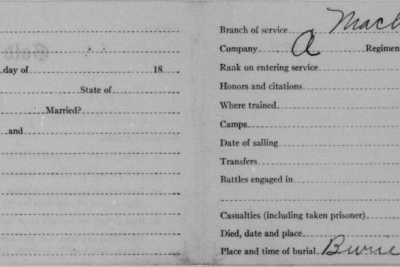 day of 18
State of
Married?
and
Branch of service Mach
Company A Regimen
Rank on entering service
Honors and citations
Where trained
Camps
Date of sailing
Transfers
Battles engaged in
Casualties (including taken prisoner)
Died, date and place
Place and time of burial Burie